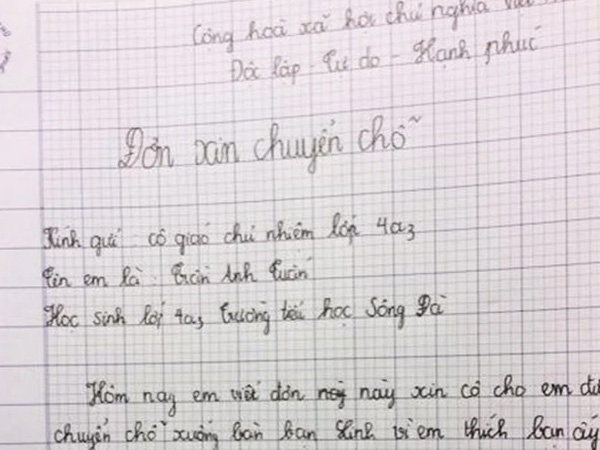 Công hoà xã hội chủ nghĩa Việt
Độc lập - Tự do - Hạnh phúc
Đơn xin chuyển chỗ
Kính gửi: cô giáo chủ nhiệm lớp 4a3
Tên em là: Trần Anh Tuấn
Học sinh lớp 4a3 trường tiểu học Sông Đà
Hôm nay em viết đơn này xin cô cho em
chuyển chỗ xuống bàn bạn Linh vì em thích bạn ấy